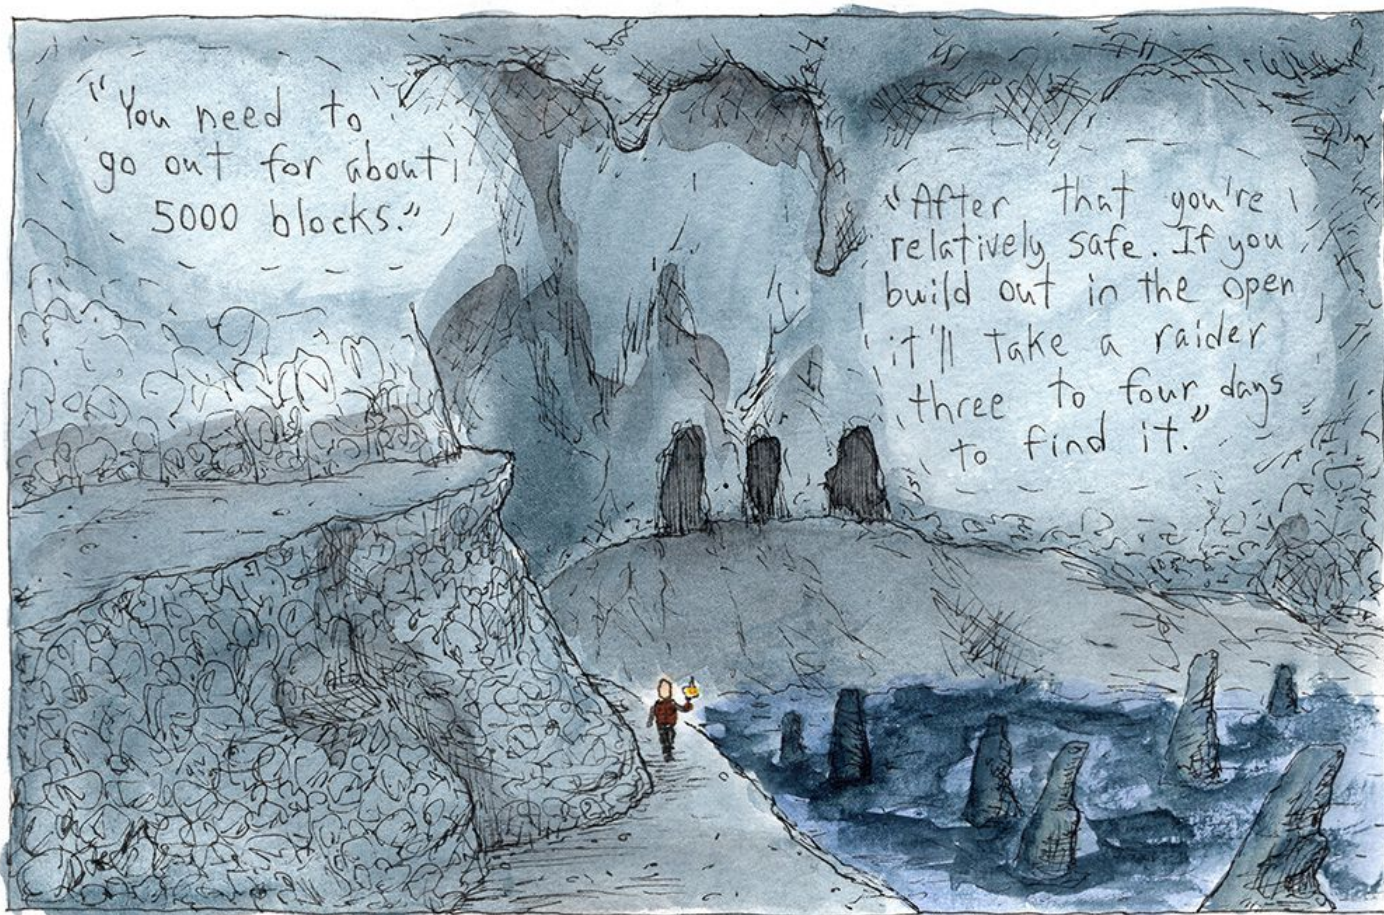 "You need to
go out for about
5000 blocks."
"After that you're
relatively safe. If you
build out in the open
it'll take a raider
three to four days
to find it."